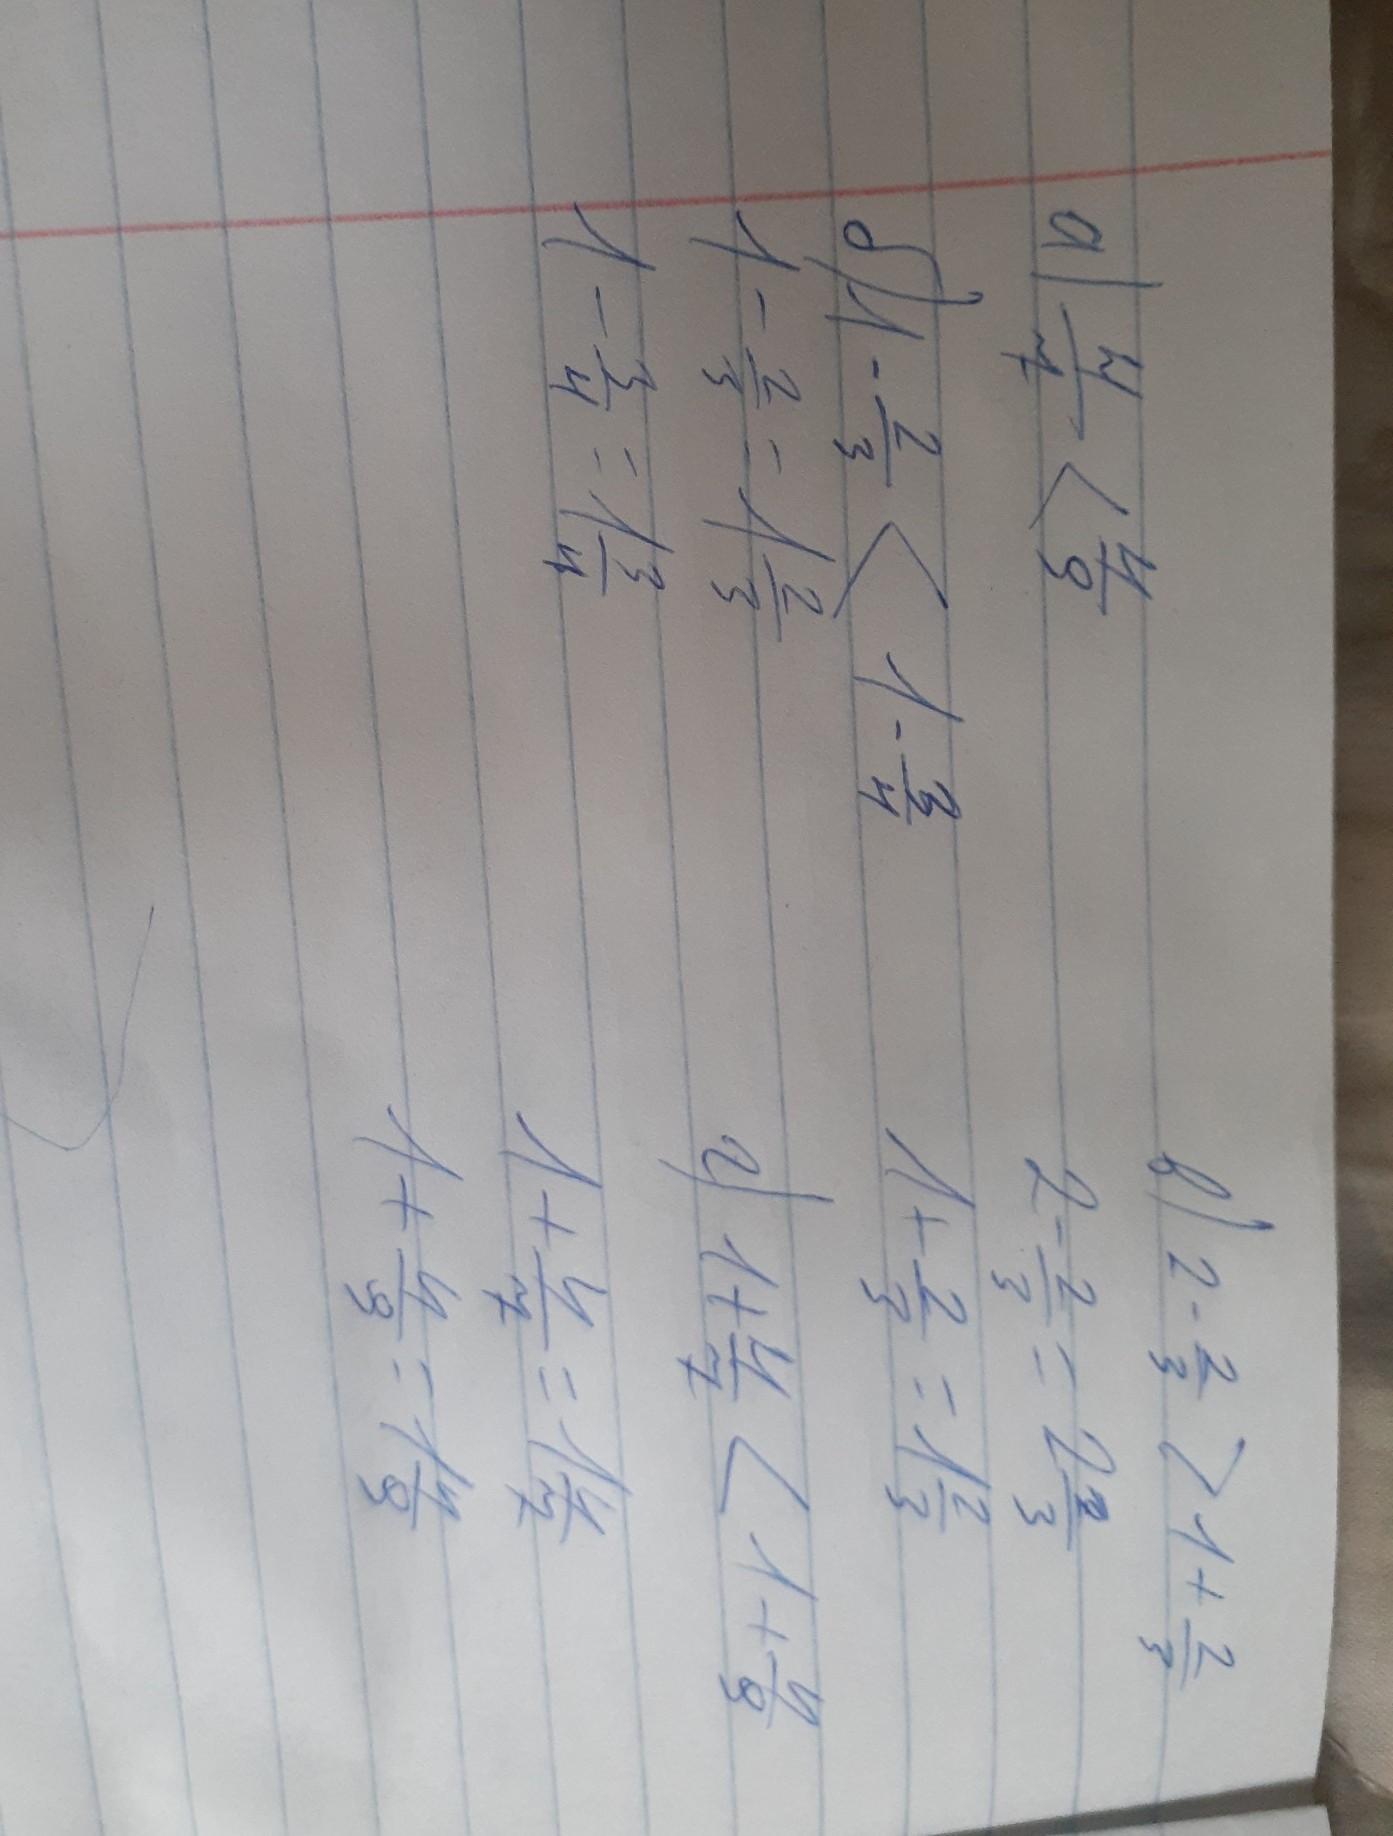 а) 4/7 < 4/9
б) 1 - 2/3 < 1 - 3/4
1 - 2/3 = 1 2/3
1 - 3/4 = 1 3/4
в) 2 - 2/3 > 1 + 2/3
2 - 2/3 = 2 2/3
1 + 2/3 = 1 2/3
г) 1 + 4/7 < 1 + 4/9
1 + 4/7 = 1 4/7
1 + 4/9 = 1 4/9